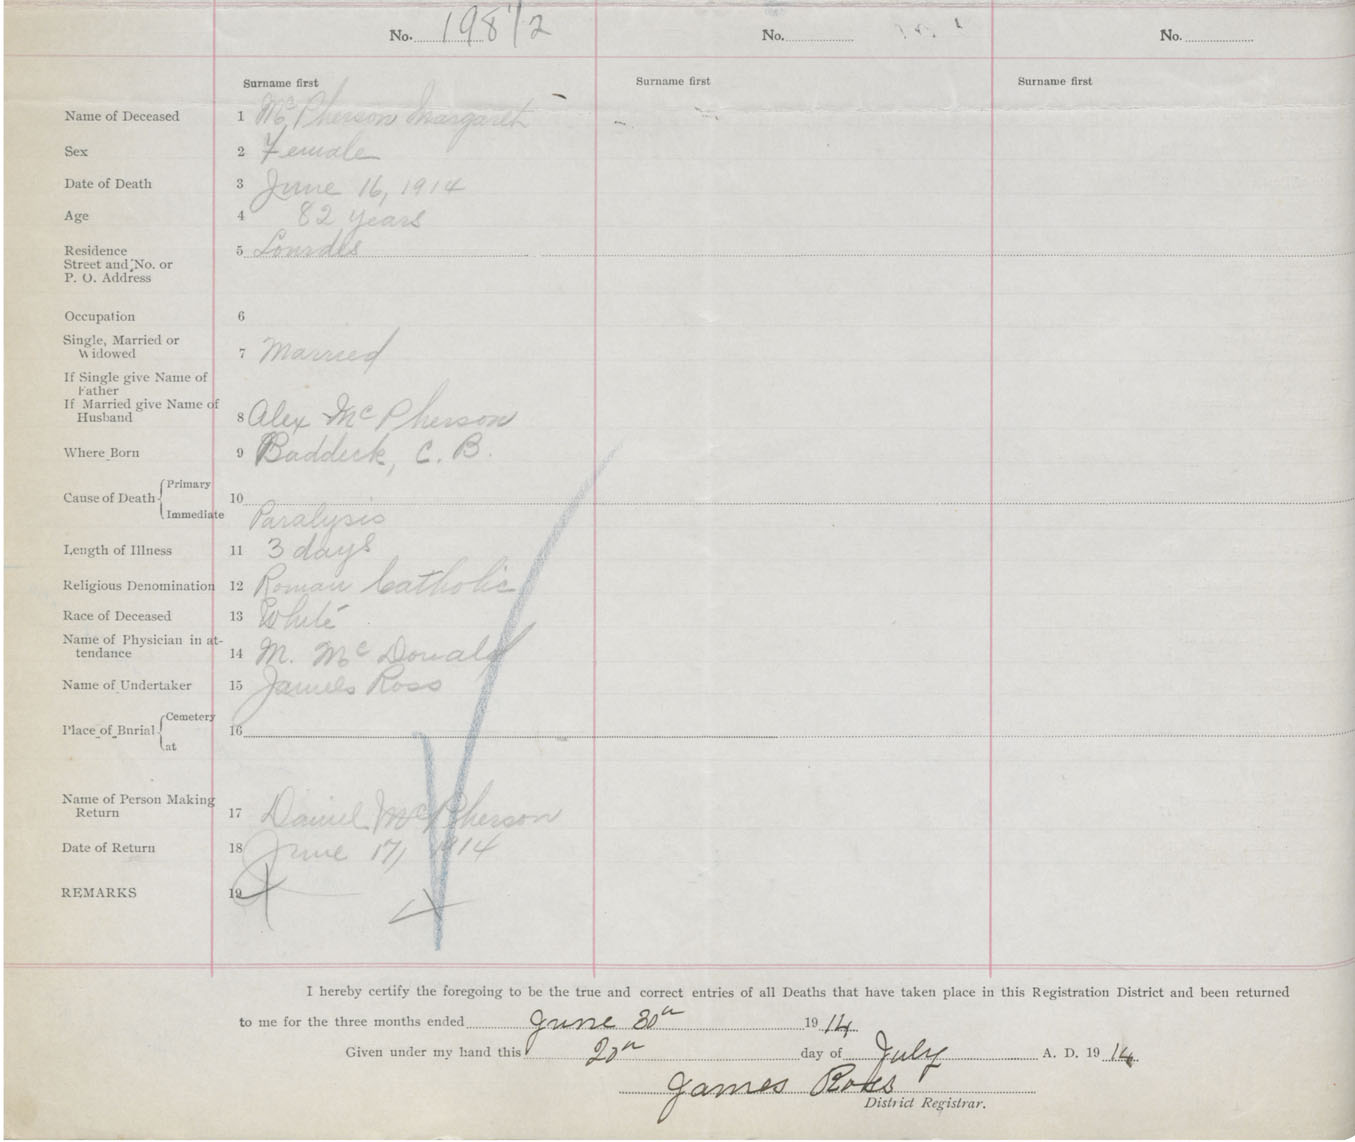 No. 198 1/2 No. No.
Surname first Surname first Surname first
Name of Deceased 1 McPherson Margaret
Sex 2 Female
Date of Death 3 June 16, 1914
Age 4 82 years
Residence 5 Lourdes
Street and No. or
P. O. Address
Occupation 6
Single, Married or
Widowed 7 Married
If Single give Name of
Father
If Married give Name of
Husband 8 Alex McPherson
Where Born 9 Baddeck, C. B.
Primary
Cause of Death 10
Immediate Paralysis
Length of Illness 11 3 days
Religious Denomination 12 Roman Catholic
Race of Deceased 13 White
Name of Physician in at-
tendance 14 M. McDonald
Name of Undertaker 15 James Ross
Cemetery
Place of Burial 16
at
Name of Person Making
Return 17 Daniel McPherson
Date of Return 18 June 17, 1914
REMARKS 19
I hereby certify the foregoing to be the true and correct entries of all Deaths that have taken place in this Registration District and been returned
to me for the three months ended June 30th 1914
Given under my hand this 20th day of July A. D. 1914
James Ross
District Registrar.